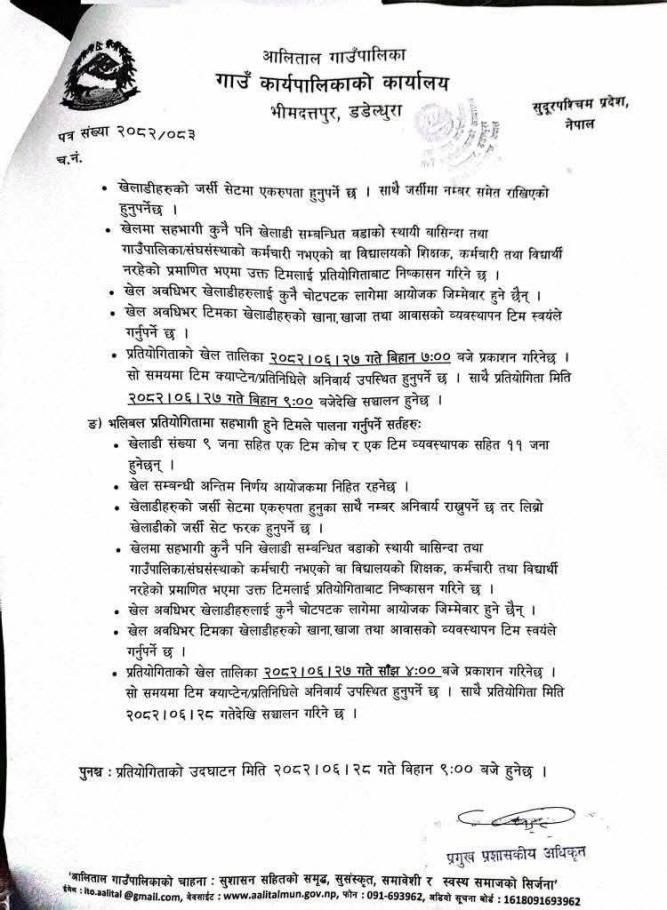 आलिताल गाउँपालिका
गाउँ कार्यपालिकाको कार्यालय
भीमदत्तपुर, डडेल्धुरा
सुदूरपश्चिम प्रदेश,
नेपाल
पत्र संख्या २०८२/०८३
च.नं.
• खेलाडीहरुको जर्सी सेटमा एकरुपता हुनुपर्ने छ । साथै जर्सीमा नम्बर समेत राखिएको
हुनुपर्नेछ ।
• खेलमा सहभागी कुनै पनि खेलाडी सम्बन्धित वडाको स्थायी बासिन्दा तथा
गाउँपालिका/संघसंस्थाको कर्मचारी नभएको वा विद्यालयको शिक्षक, कर्मचारी तथा विद्यार्थी
नरहेको प्रमाणित भएमा उक्त टिमलाई प्रतियोगिताबाट निष्कासन गरिने छ ।
• खेल अवधिभर खेलाडीहरुलाई कुनै चोटपटक लागेमा आयोजक जिम्मेवार हुने छैन् ।
• खेल अवधिभर टिमका खेलाडीहरुको खाना,खाजा तथा आवासको व्यवस्थापन टिम स्वयंले
गर्नुपर्ने छ ।
• प्रतियोगिताको खेल तालिका २०८२।०६।२७ गते बिहान ७:०० बजे प्रकाशन गरिनेछ ।
सो समयमा टिम क्याप्टेन/प्रतिनिधिले अनिवार्य उपस्थित हुनुपर्ने छ । साथै प्रतियोगिता मिति
२०८२।०६।२७ गते बिहान ९:०० बजेदेखि सञ्चालन हुनेछ ।
ङ) भलिबल प्रतियोगितामा सहभागी हुने टिमले पालना गर्नुपर्ने सर्तहरुः
• खेलाडी संख्या ९ जना सहित एक टिम कोच र एक टिम व्यवस्थापक सहित ११ जना
हुनेछन् ।
• खेल सम्बन्धी अन्तिम निर्णय आयोजकमा निहित रहनेछ ।
• खेलाडीहरुको जर्सी सेटमा एकरुपता हुनुका साथै नम्बर अनिवार्य राख्नुपर्ने छ तर लिब्रो
खेलाडीको जर्सी सेट फरक हुनुपर्ने छ ।
• खेलमा सहभागी कुनै पनि खेलाडी सम्बन्धित वडाको स्थायी बासिन्दा तथा
गाउँपालिका/संघसंस्थाको कर्मचारी नभएको वा विद्यालयको शिक्षक, कर्मचारी तथा विद्यार्थी
नरहेको प्रमाणित भएमा उक्त टिमलाई प्रतियोगिताबाट निष्कासन गरिने छ ।
• खेल अवधिभर खेलाडीहरुलाई कुनै चोटपटक लागेमा आयोजक जिम्मेवार हुने छैन् ।
• खेल अवधिभर टिमका खेलाडीहरुको खाना,खाजा तथा आवासको व्यवस्थापन टिम स्वयंले
गर्नुपर्ने छ ।
• प्रतियोगिताको खेल तालिका २०८२।०६।२७ गते साँझ ४:०० बजे प्रकाशन गरिनेछ ।
सो समयमा टिम क्याप्टेन/प्रतिनिधिले अनिवार्य उपस्थित हुनुपर्ने छ । साथै प्रतियोगिता मिति
२०८२।०६।२८ गतेदेखि सञ्चालन गरिने छ ।
पुनश्च : प्रतियोगिताको उदघाटन मिति २०८२।०६।२८ गते विहान ९:०० बजे हुनेछ ।
प्रमुख प्रशासकीय अधिकृत
'आलिताल गाउँपालिकाको चाहना : सुशासन सहितको समृद्ध, सुसंस्कृत, समावेशी र स्वस्थ समाजको सिर्जना'
ईमेल : ito.aalital @gmail.com, वेबसाईट : www.aalitalmun.gov.np, फोन : 091-693962, अडियो सूचना बोर्ड : 1618091693962